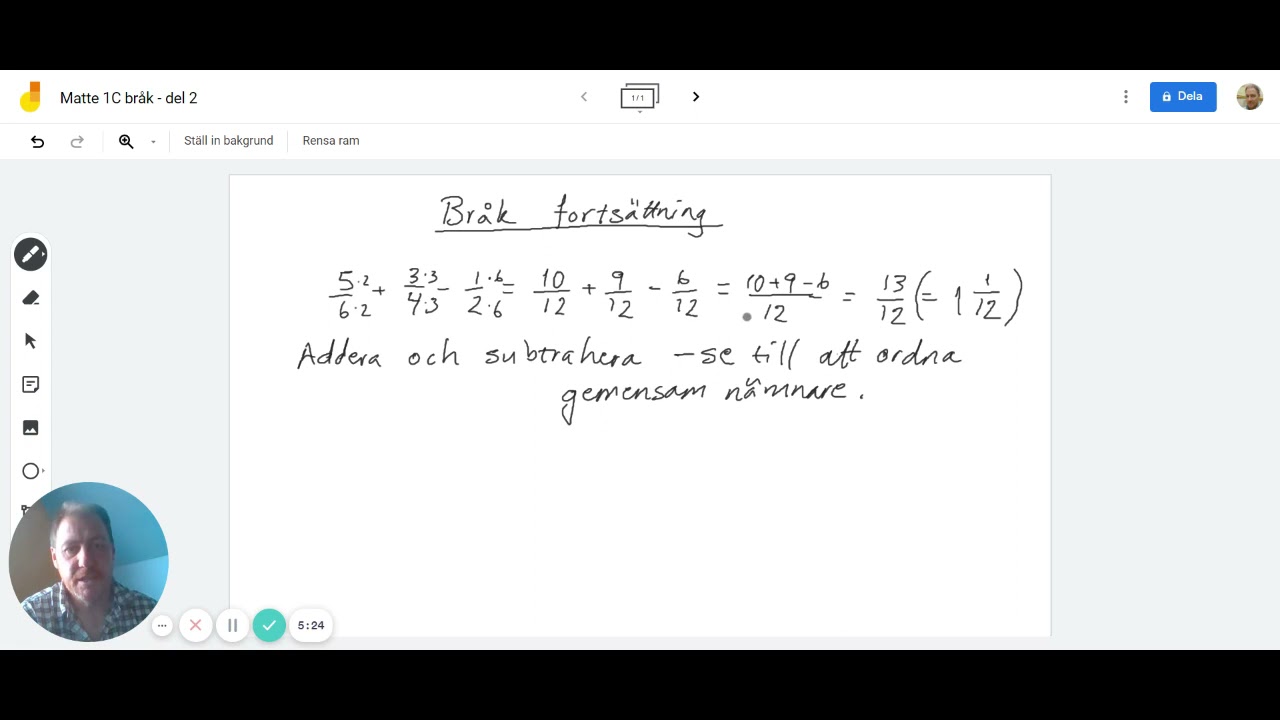 Matte 1C bråk - del 2
1/1
Dela
Ställ in bakgrund
Rensa ram
Bråk fortsättning
5·2/6·2 + 3·3/4·3 - 1·6/2·6 = 10/12 + 9/12 - 6/12 = 10+9-6/12 = 13/12 (= 1 1/12)
Addera och subtrahera - se till att ordna
gemensam nämnare.
5:24